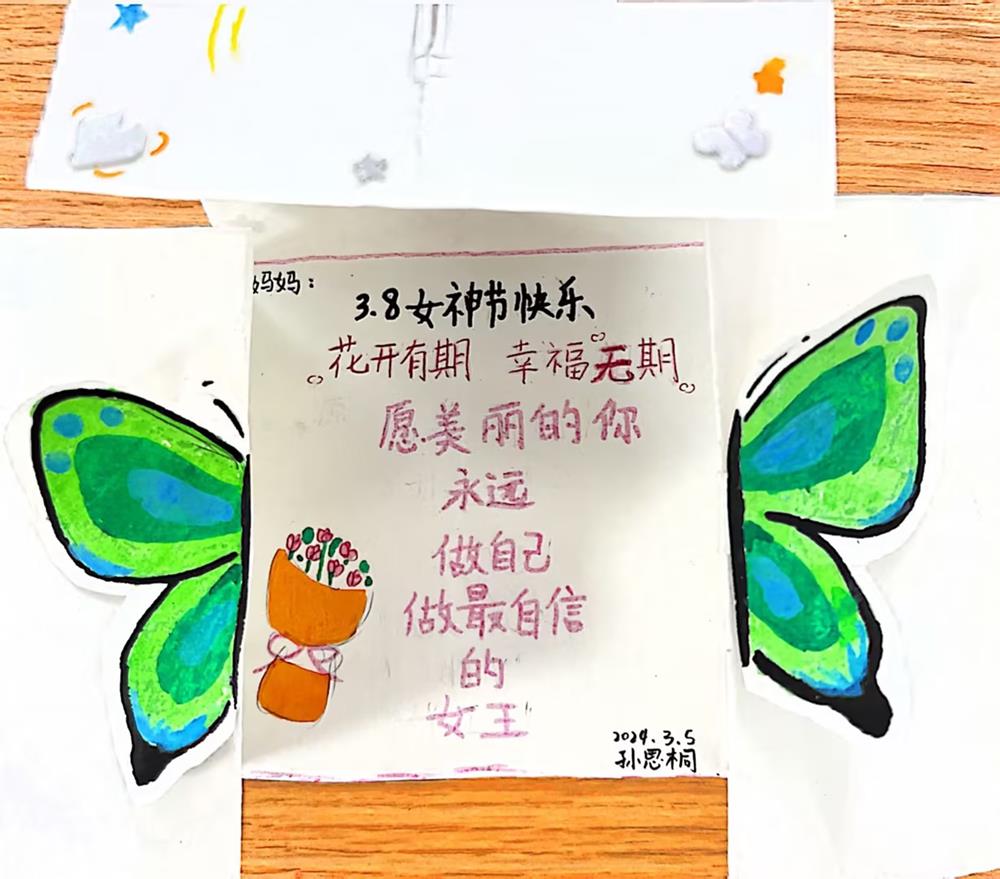 妈妈：
3.8女神节快乐
花开有期 幸福无期
愿美丽的你
永远
做自己
做最自信
的
女王
2024.3.5
孙思桐